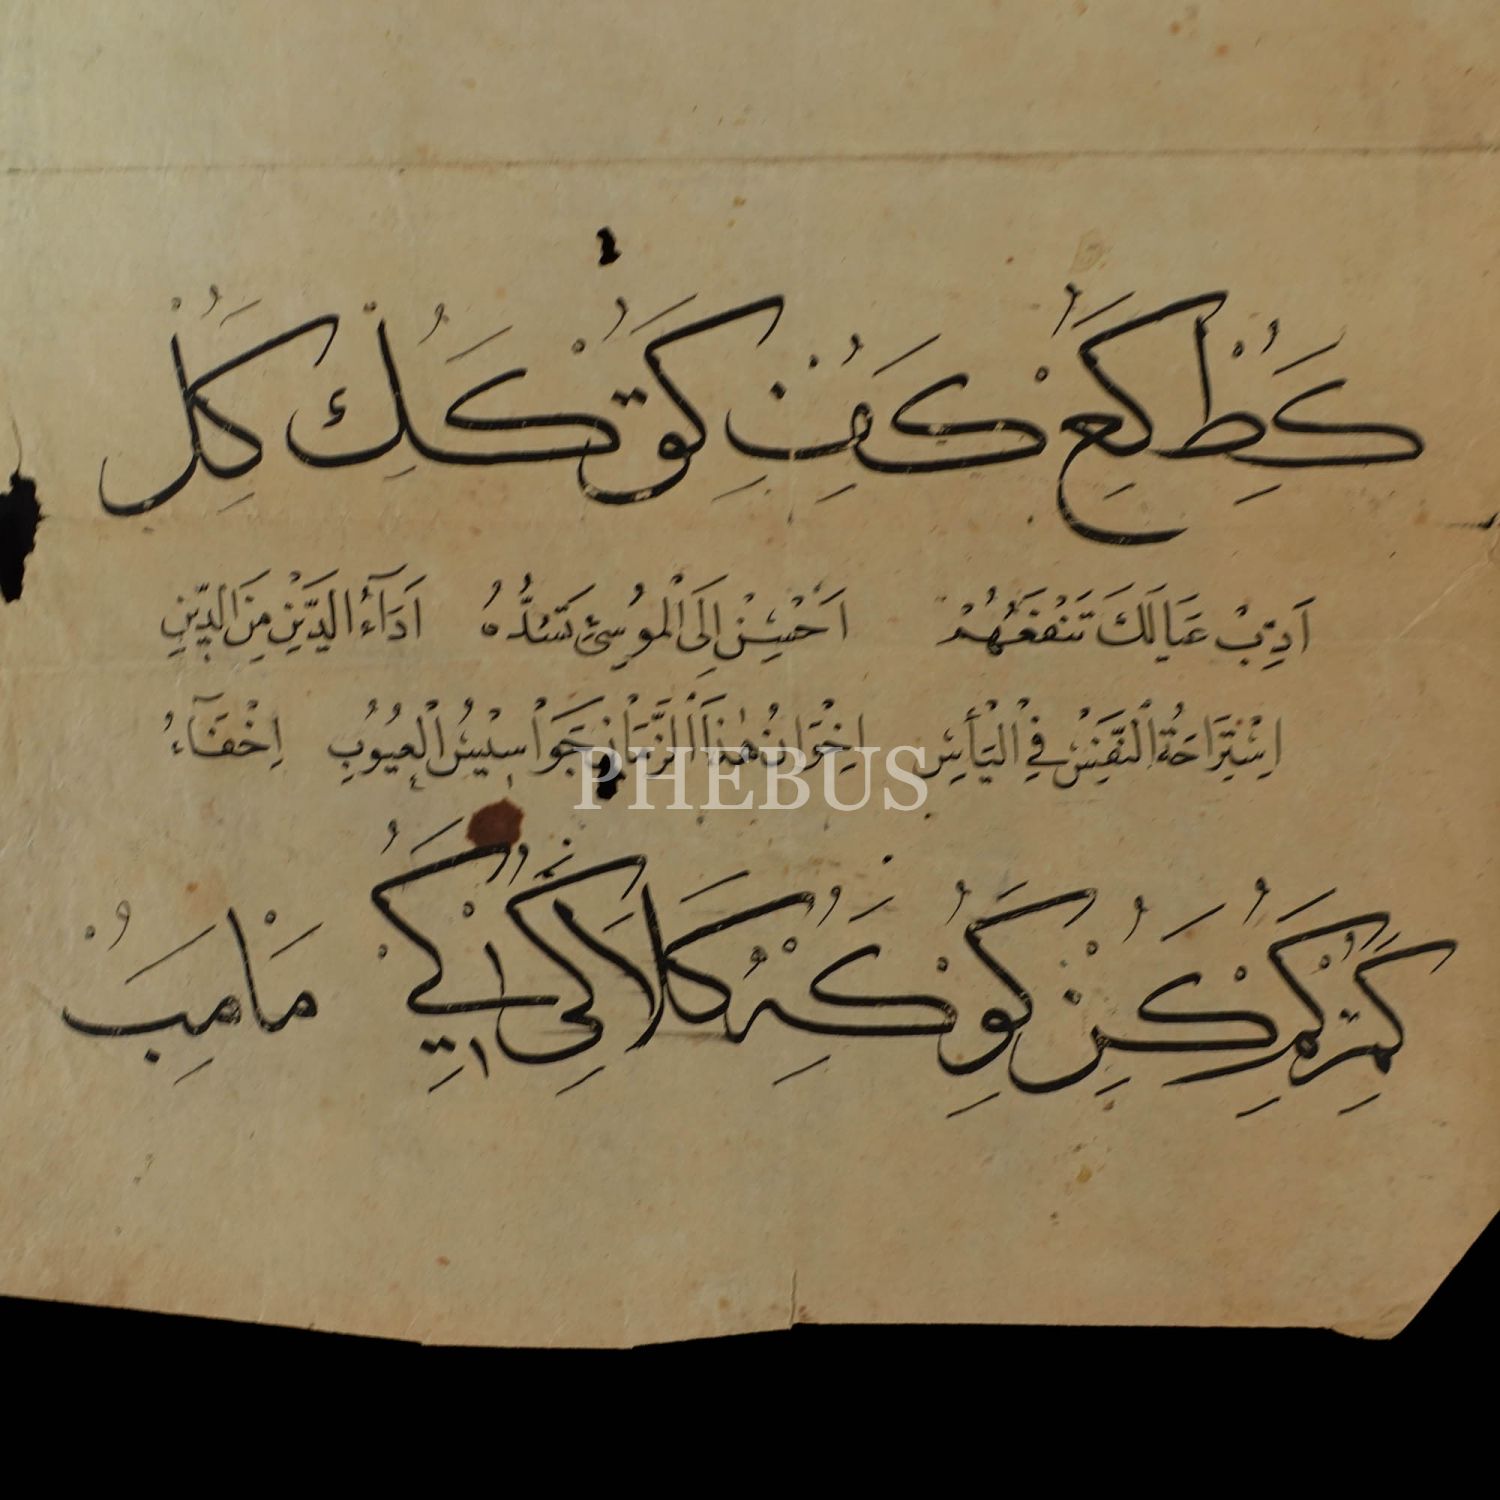 كط كع كف كق كك كل
اَدِّبْ عَيَالَكَ تَنْفَعْهُمْ اَحْسِنْ اِلَى الْمُوسِئِ تَسُدُّهُ اَدَآءُ الدَّيْنِ مِنَ الدِّينِ
اِسْتِرَاحَةُ النَّفْسِ فِي الْيَأْسِ اِخْوَانُ هٰذَا الزَّمَانِ جَوَاسِيْسُ الْعُيُوبِ اِخْفَآءُ
PHEBUS
كم كم كن كو كه كلا كي كي ما مب